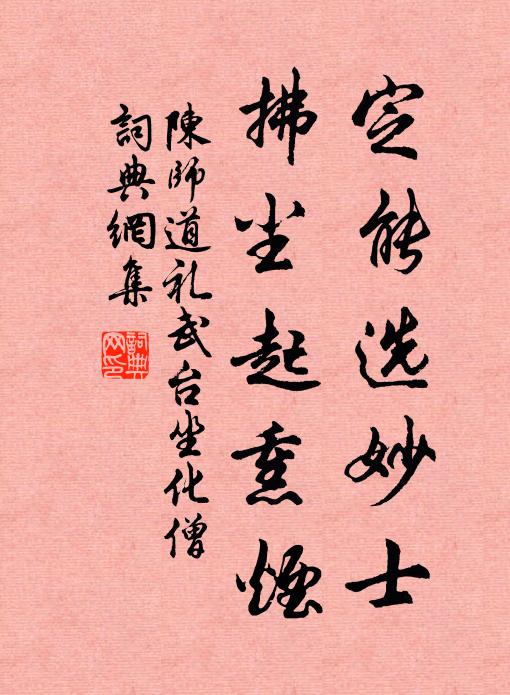 定能选妙士
拂尘起熏烟
陳師道礼武台坐化僧
詞典網集
詞典
网印